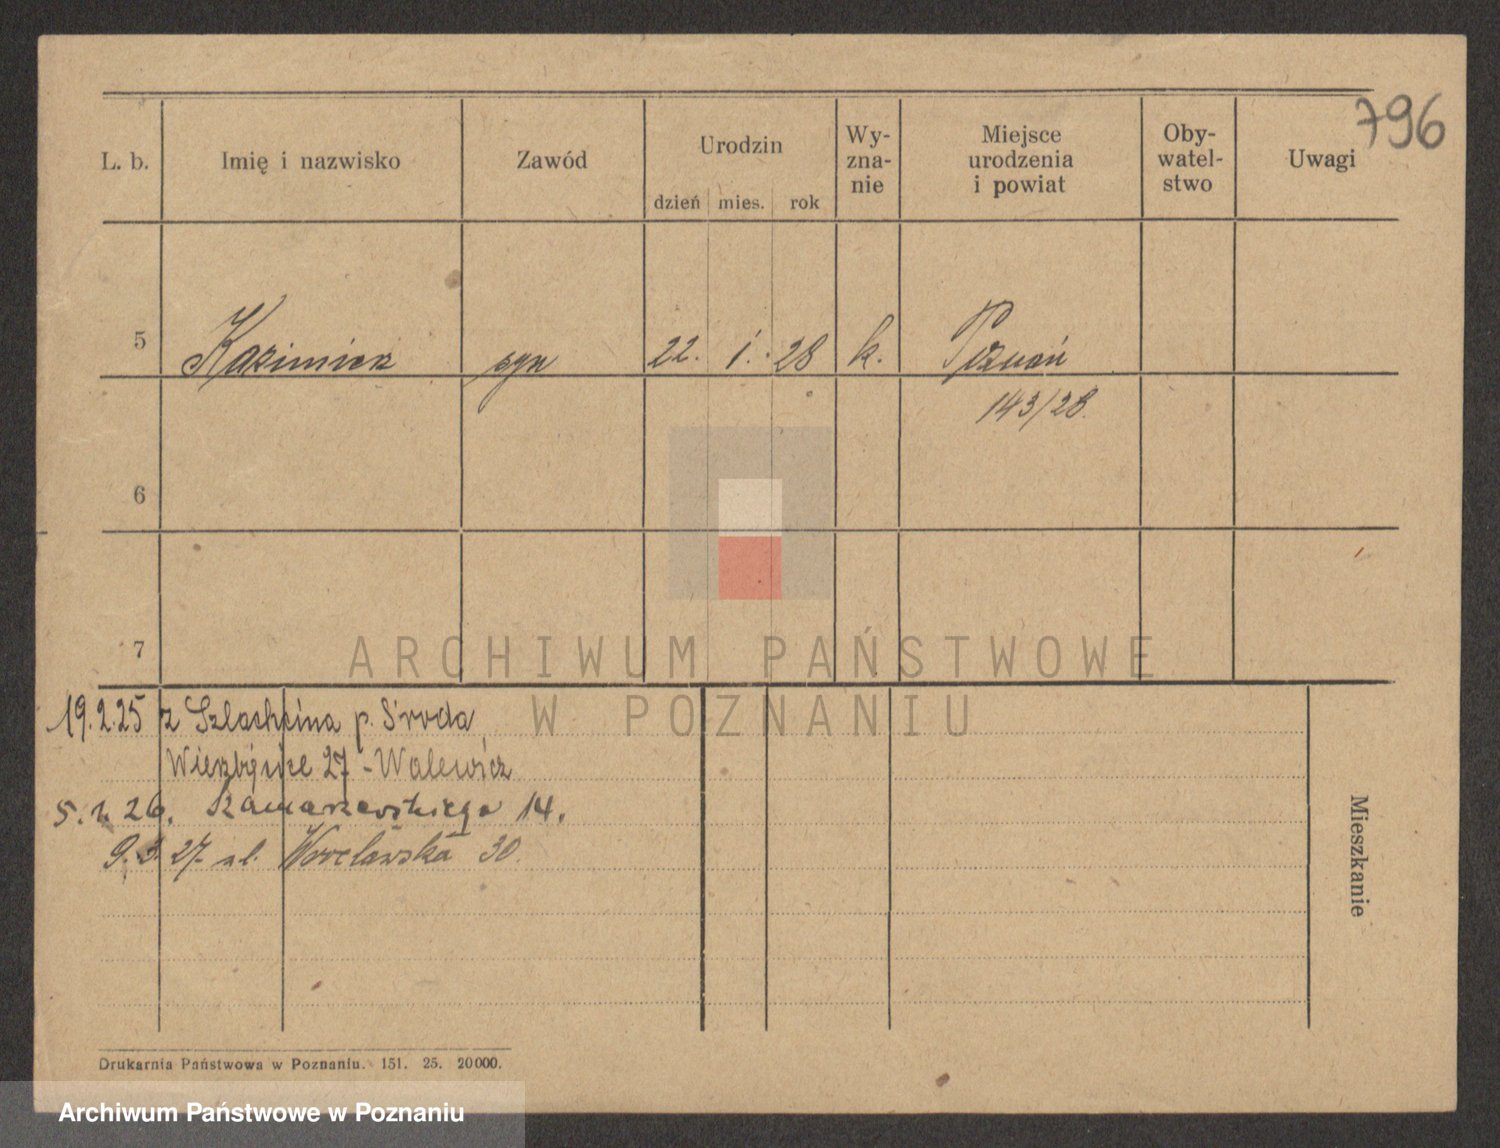 796
L. b. Imię i nazwisko Zawód Urodzin Wy- Miejsce Oby- Uwagi
zna- urodzenia watel-
nie i powiat stwo
dzień mies. rok
5 Kazimierz syn 22. 1. 28 k. Poznań
143/28.
6
7
19.2.25 z Szlachcina p. Środa
Wierzbięcice 27 - Walewicz
5. 1. 26. 14.
9. 3. 27 ul. Wrocławska 30.
Mieszkanie
Drukarnia Państwowa w Poznaniu. 151. 25. 20000.
ARCHIWUM PAŃSTWOWE
W POZNANIU
Archiwum Państwowe w Poznaniu